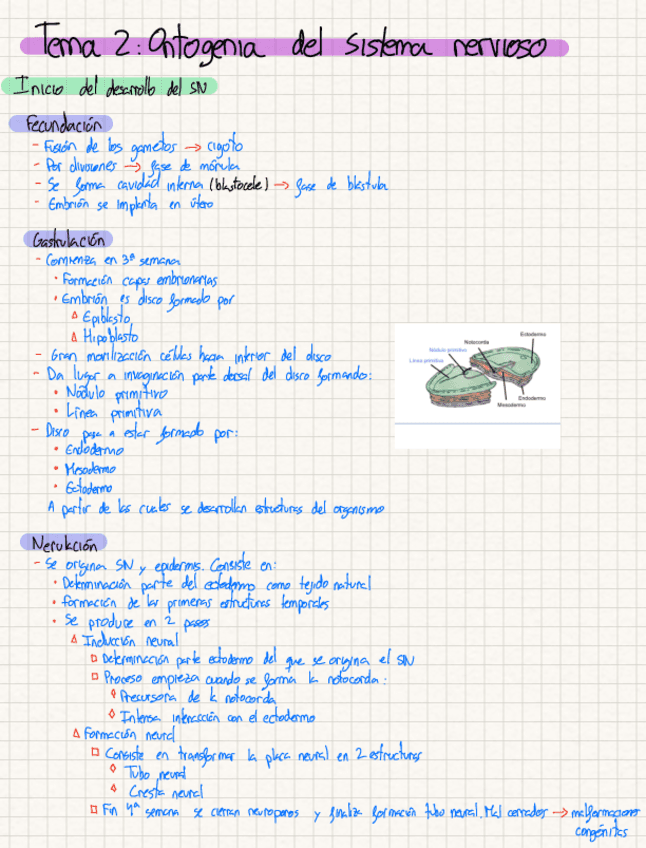 Tema 2: Ontogenia del sistema nervioso
Inicio del desarrollo del SN
Fecundación
- Fusión de los gametos → cigoto
- Por divisiones → fase de mórula
- Se forma cavidad interna (blastocele) → fase de blástula
- Embrión se implanta en útero
Gastrulación
- Comienza en 3ª semana
· Formación capas embrionarias
· Embrión es disco formado por
△ Epiblasto
△ Hipoblasto
- Gran movilización células hacia interior del disco
- Da lugar a invaginación parte dorsal del disco formando:
· Nódulo primitivo
· Línea primitiva
- Disco pasa a estar formado por:
· Endodermo
· Mesodermo
· Ectodermo
A partir de las cuales se desarrollan estructuras del organismo
Ectodermo
Notocorda
Nódulo primitivo
Línea primitiva
Endodermo
Mesodermo
Nerulación
- Se origina SN y epidermis. Consiste en:
· Determinación parte del ectodermo como tejido natural
· Formación de las primeras estructuras temporales
· Se produce en 2 pasos
△ Inducción neural
□ Determinación parte ectodermo del que se origina el SN
□ Proceso empieza cuando se forma la notocorda:
◊ Precursora de la notocorda
◊ Intensa interacción con el ectodermo
△ Formación neural
□ Consiste en transformar la placa neural en 2 estructuras
◊ Tubo neural
◊ Cresta neural
□ Fin 4ª semana se cierran neuroporos y finaliza formación tubo neural. Mal cerrados → malformaciones
congénitas